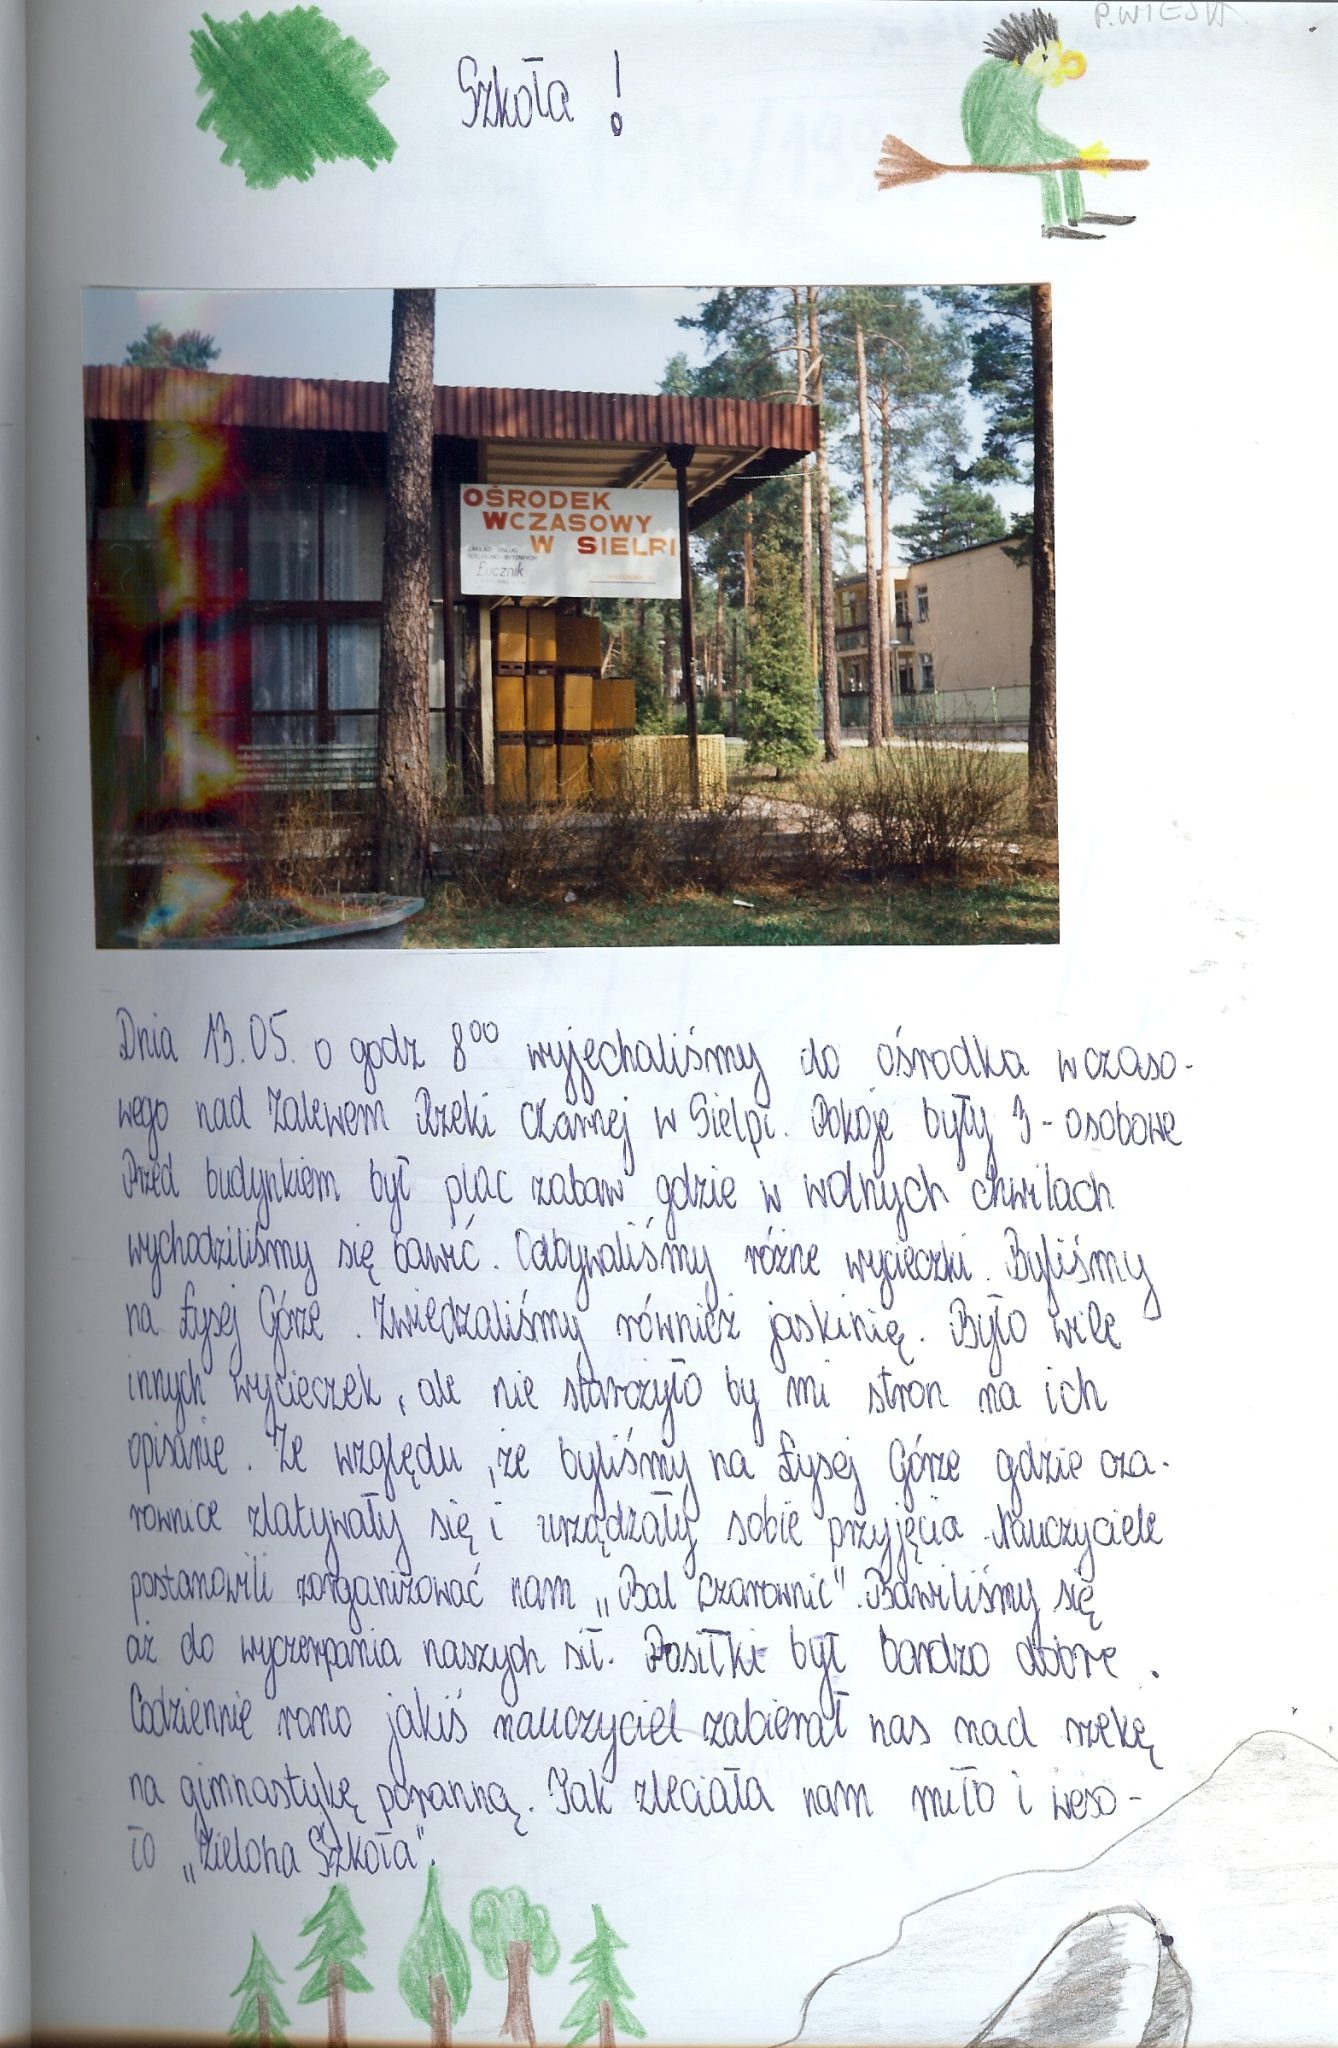 P.WIESŁA
Szkoła !
OŚRODEK
WCZASOWY
W SIELPI
ZAKŁAD USŁUG
SOCJALNO-BYTOWYCH
Łucznik
Dnia 13.05. o godz 8⁰⁰ wyjechaliśmy do ośrodka wczaso-
wego nad Zalewem Rzeki Czarnej w Sielpi. Pokoje były 3-osobowe
Przed budynkiem był plac zabaw gdzie w wolnych chwilach
wychodziliśmy się bawić. Odbywaliśmy różne wycieczki. Byliśmy
na Łysej Górze. Zwiedzaliśmy również jaskinię. Było wile
innych wycieczek, ale nie starożyło by mi stron na ich
opisanie. Ze względu, że byliśmy na Łysej Górze gdzie cza-
rownice zlatywały się i urządzały sobie przyjęcia. Nauczyciele
postanowili zorganizować nam „Bal Czarownic". Bawiliśmy się
aż do wyczerpania naszych sił. Posiłki był bardzo dobre.
Codziennie rano jakiś nauczyciel zabierał nas nad rzekę
na gimnastykę poranną. Tak zleciała nam miło i weso-
ło „Zielona Szkoła".